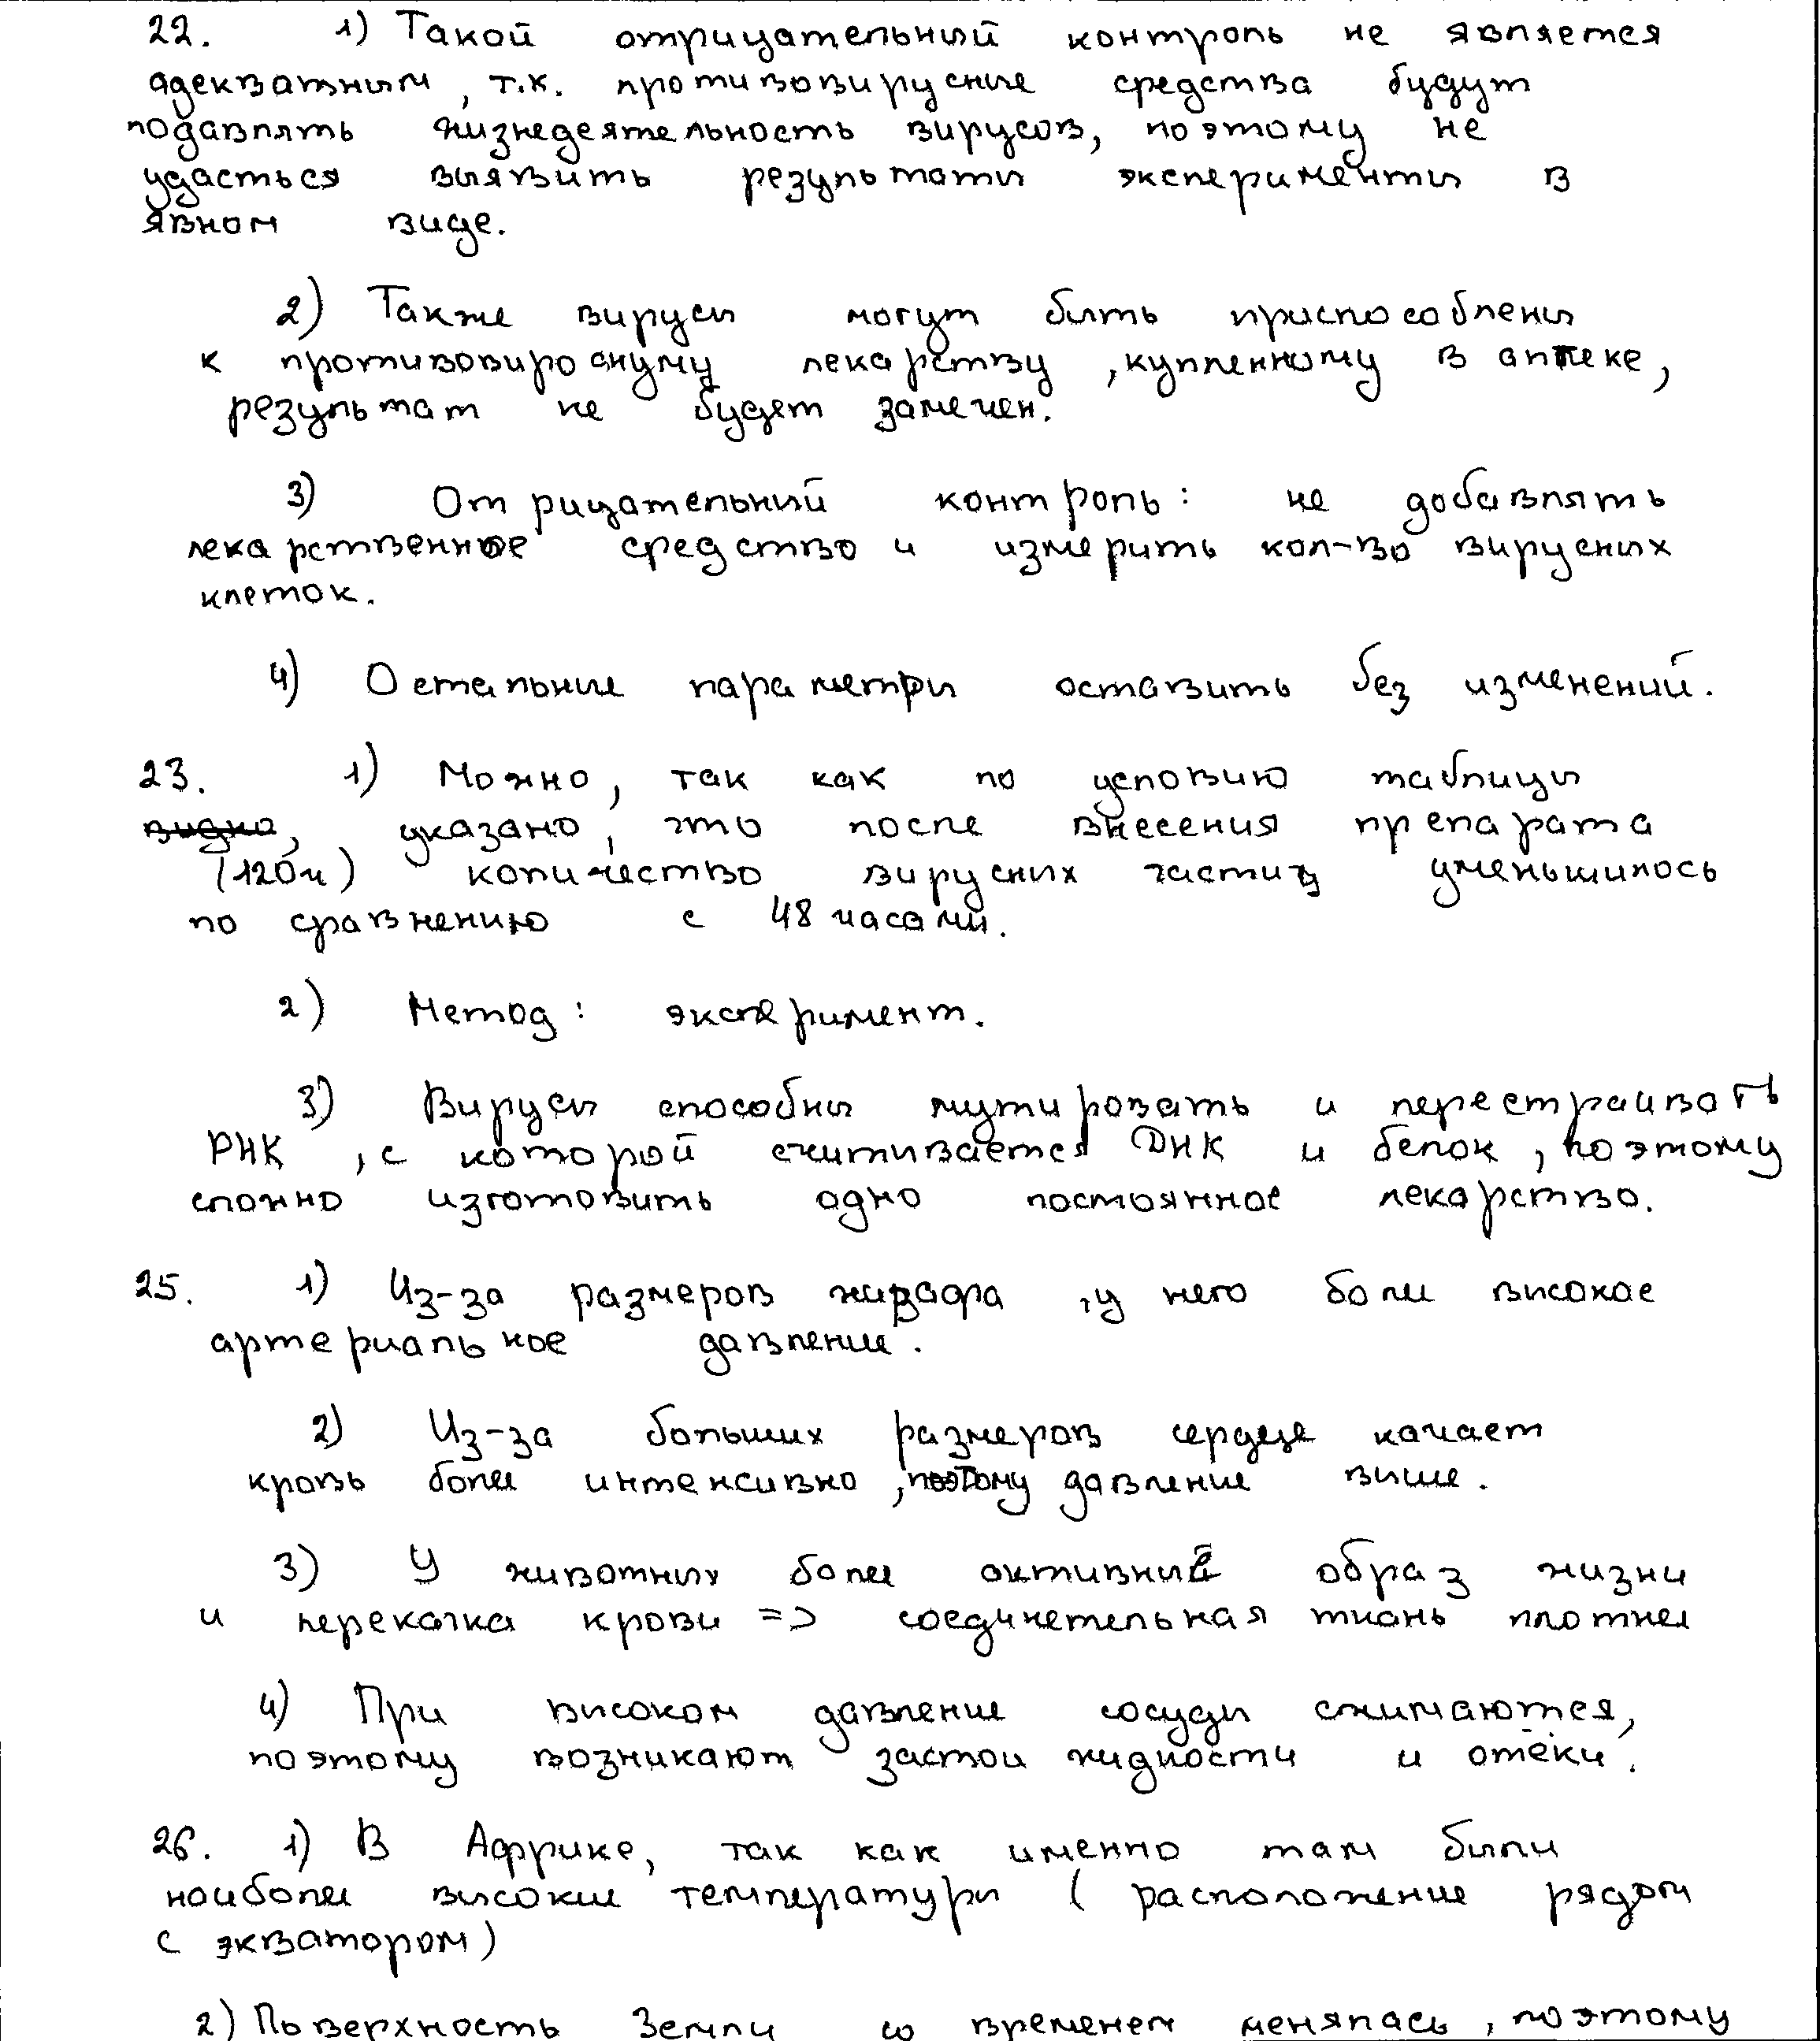 22. 1) Такой отрицательный контроль не является
адекватным, т.к. противовирусные средства будут
подавлять жизнедеятельность вирусов, поэтому не
удасться выявить результаты эксперименты в
явном виде.
2) Также вирусы могут быть приспособлены
к противовиросному лекарству, купленному в аптеке,
результат не будет замечен.
3) Отрицательный контроль: не добавлять
лекарственное средство и измерить кол-во вирусных
клеток.
4) Остальные параметры оставить без изменений.
23. 1) Можно, так как по условию таблицы
видно, указано, что после внесения препарата
(120ч) количество вирусных частиц уменьшилось
по сравнению с 48 часами.
2) Метод: эксперимент.
3) Вирусы способны мутировать и перестраивать
РНК, с которой считывается ДНК и белок, поэтому
сложно изготовить одно постоянное лекарство.
25. 1) Из-за размеров жирафа, у него более высокое
артериальное давление.
2) Из-за больших размеров сердце качает
кровь более интенсивно, поэтому давление выше.
3) У животных более активный образ жизни
и перекачка крови => соединетельная ткань плотнее
4) При высоком давление сосуды сжимаются,
поэтому возникают застои жидкости и отёки.
26. 1) В Африке, так как именно там были
наиболее высокие температуры (расположение рядом
с экватором)
2) Поверхность Земли со временем менялась, поэтому